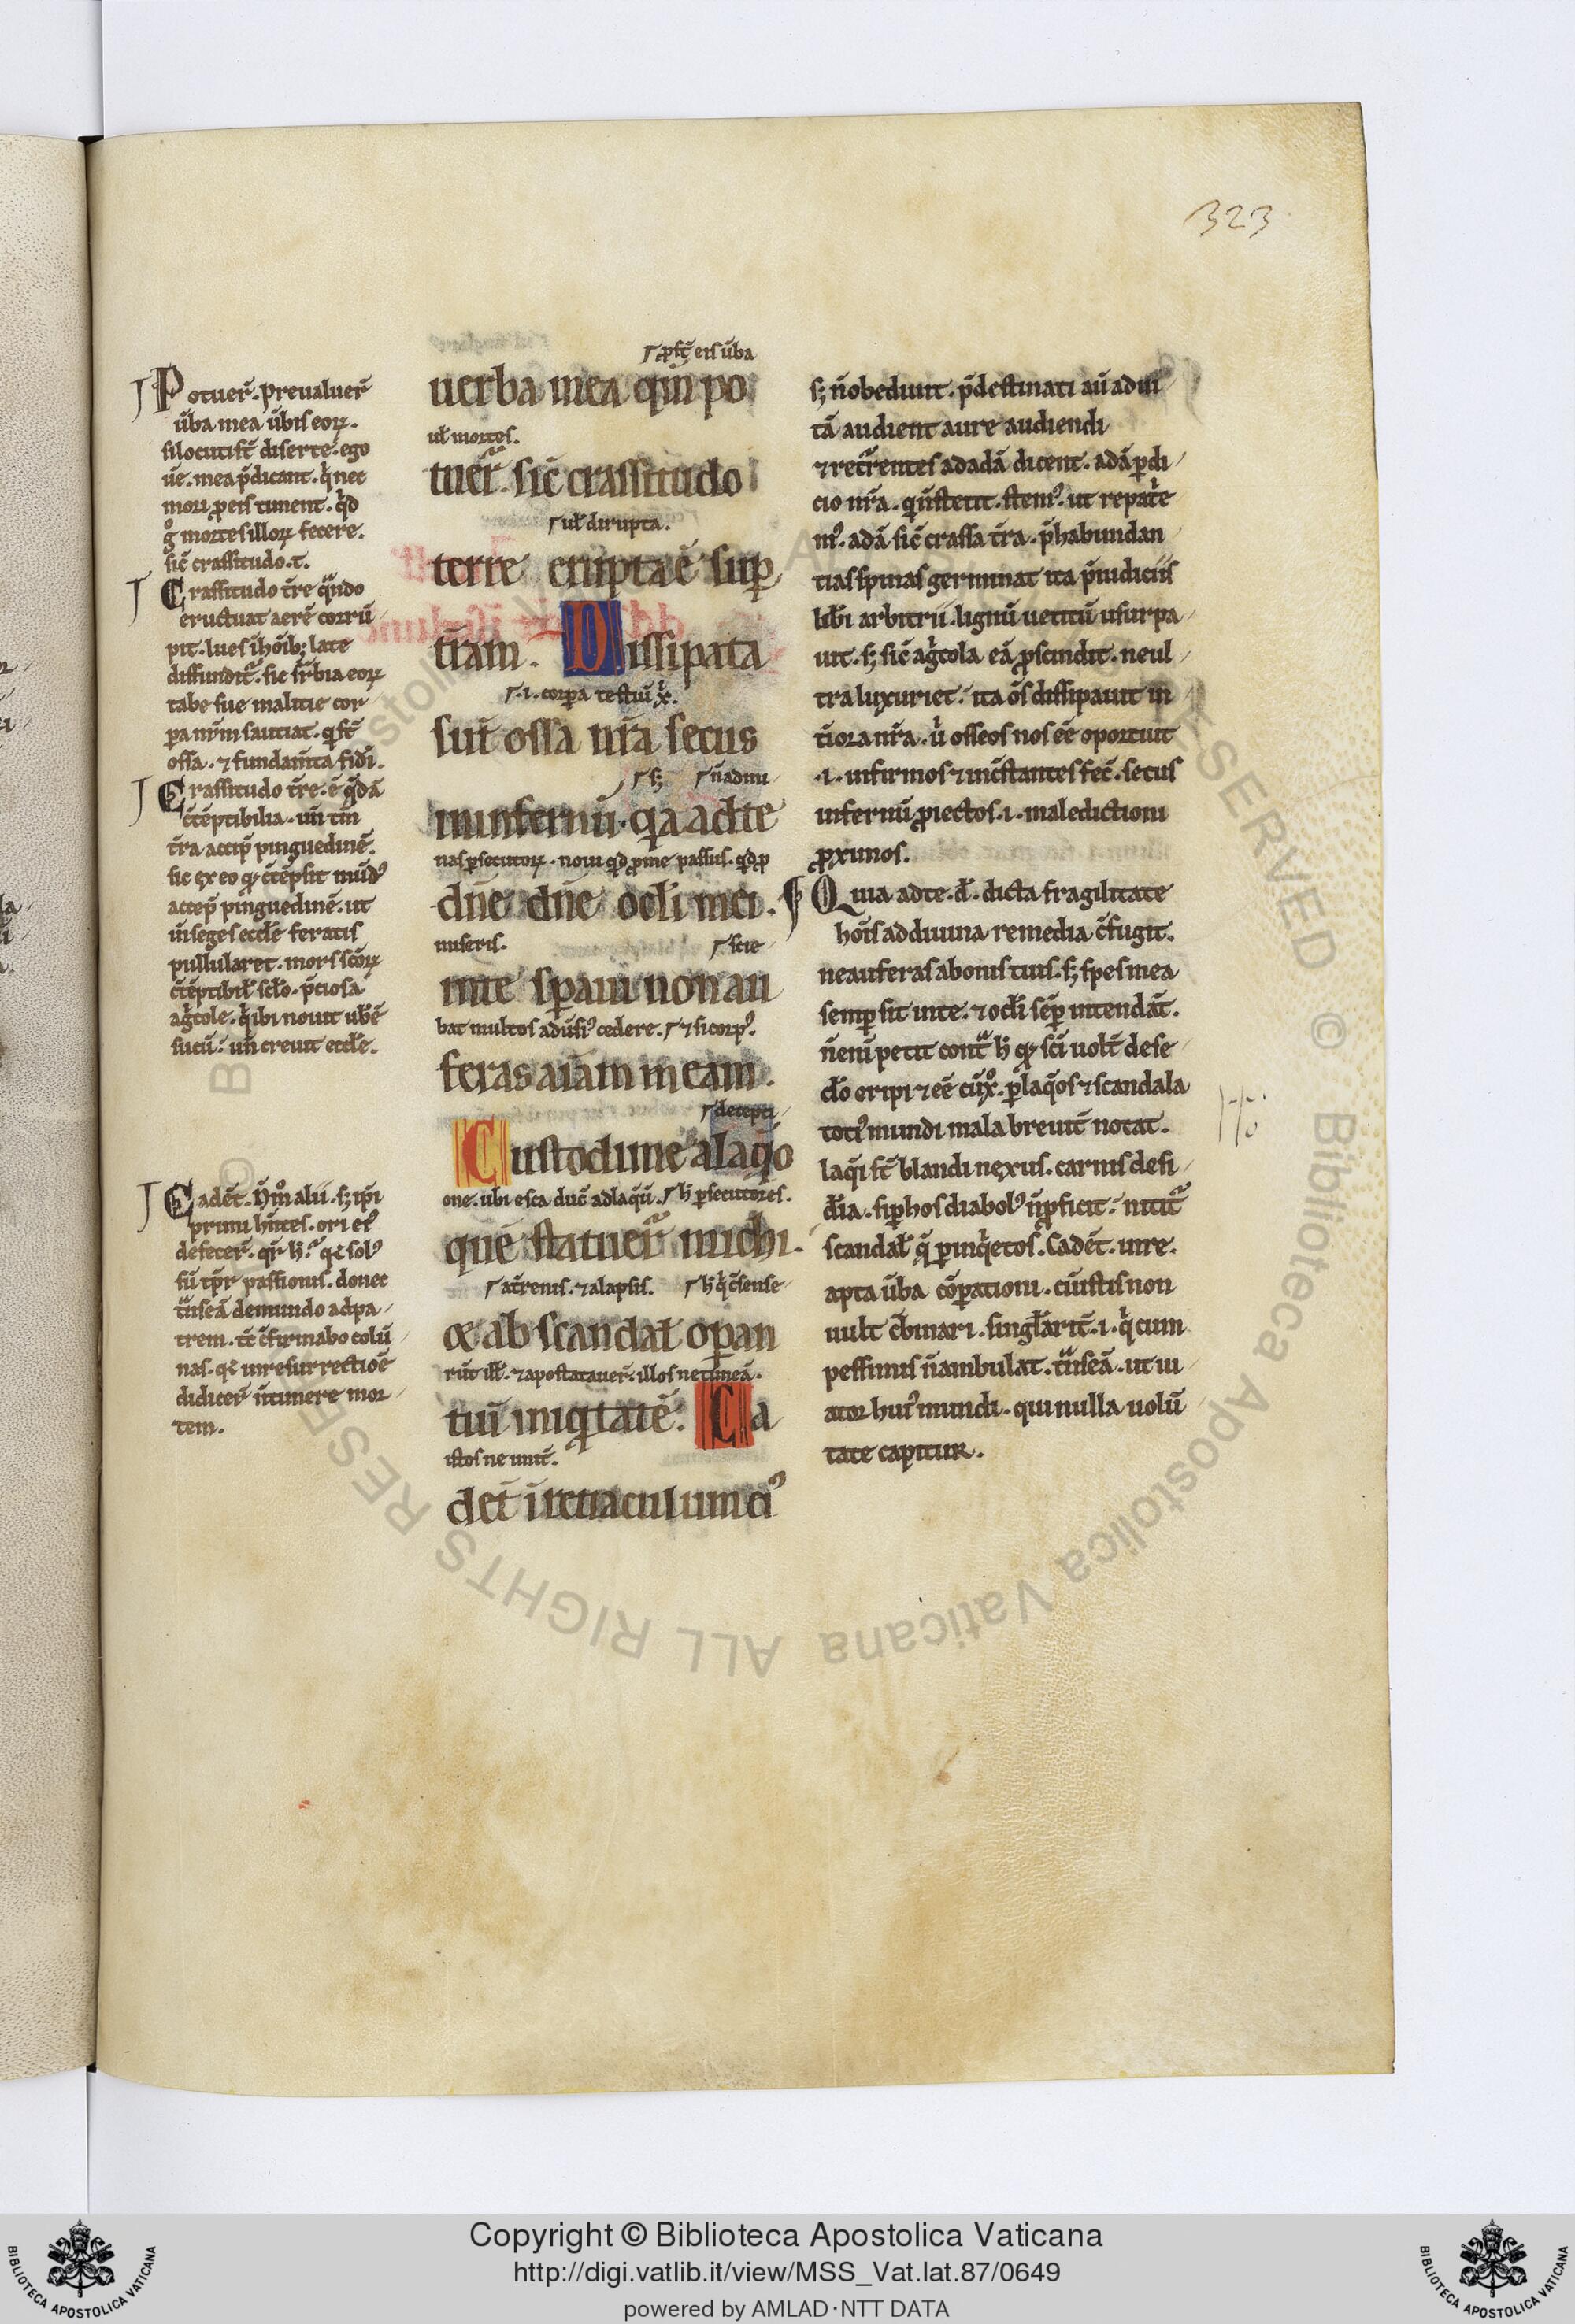 323
Potuer̄. preualuer̄
ūba mea ūbis eoꝝ.
si locuti sc̄ diserte. ego
ūe. mea p̄dicant. q̇ nec
mori ꝓ eis timent. q̇d
g̊ mortes illoꝝ fecere.
sic̄ crassitudo. t.
Crassitudo t̄re q̄ndo
eructuat aerē corrū
pit. lues ī hōib; late
diffundit̄. sic suꝑbia eoꝝ
tabe sue malitie cor
ꝑa nr̄m sauciat. q̄ sc̄
ossa. ⁊ fundam̄ta fidei.
Crassitudo t̄re. ē q̄dā
c̄tēptibilia. un̄ tm̄
t̄ra accip̄ pinguedinē.
sic ex eo qđ c̄tēpsit mūdꝰ
accep̄ pinguedinē. ut
īseges eccl̄e feratis
pullularet. mors sc̄oꝝ
c̄tēptibil̄ scl̄o. p̄ciosa
ag̓cole. q̇ ibi nouit ub̓ē
sucū. un̄ creuit eccl̄e.
Cadēt. H̄ m̊ alii. s; ip̄i
primi hn̄tes. ori eiꝰ
defecer̄. qr̄ h̄. q̄ solꝰ
sū tp̄r passionis. donec
t̄nseā de mundo ad pa
trem. tc̄ c̄firmabo colū
nas. q̄ in resurrectiōe
didicer̄ n̄ timere mor
tem.
ꝓsc̄ eis ūba
uerba mea qm̄ po
ul̄ mortes.
tuer̄. sic̄ crassitudo
ul̄ dirupta.
terre erupta ē suꝑ
t̄ram. Dissipata
.i. corꝑa testiū x̄.
sūt ossa nr̄a secus
s; n̄ ad mi
ninfernū. qa ad te
nas ꝑsecutoꝝ. noui qđ ꝓ me passus. qđ ꝓ
dn̄e dn̄e ocl̄i mei.
miseris. scie
in te sꝑaui non au
bat multos aduersꝰ cedere. ⁊ si corpꝰ.
feras aīam meam.
decepti
Custodi me a laq̄o
one. ubi esca duc̄ ad laq̄ū. h̄ ꝑsecutores.
quē statuer̄ michi.
at̄renis. ⁊ a lapsis. h̄ q̇ c̄sense
⁊ ab scandal̄ opan
rūt ill̄. ⁊ apostatauer̄. illos nec timeā.
tiū iniq̇tatē. Ca
istos ne imit̄.
dēt ī retiaculum eiꝰ
s; n̄ obediunt. p̄destinati aū ad ui
tā audient aure audiendi
⁊ rec̄rentes ad adā dicent. adā ꝑdi
cio nr̄a. qui n̄ stetit. stemꝰ. ut repare
mꝰ. adā sic̄ crassa t̄ra. p̄ habundan
tias spinas germinat ita p̄iudiciis
lib̓i arbitrii. lignū uetitū usurpa
uit. s; sic̄ ag̓cola eā ꝓscindit. ne ul
tra luxuriet. ita ō̄s dissipauit in
t̄iora nr̄a. u̓ osseos nos eē oportuit
.i. infirmos ⁊ inc̄stantes fec̄. secus
infernū ꝓiectos .i. maledictioni
ꝓximos.
Quia ad te. d̄. dicta fragilitate
hōis ad diuina remedia c̄fugit.
ne auferas a bonis tuis. s; spes mea
semꝑ sit in te. ⁊ ocl̄i sēꝑ intendāt.
n̄ enī petit cont̄ h̄ qđ sc̄i uolt̄ de se
cl̄o eripi ⁊ eē cū x̊. ꝑ laq̄os ⁊ scandala
totiꝰ mundi mala breuit̄ notat.
laq̄i sc̄ blandi nexus. carnis desi
d̓ia. si ꝑ hos diabolꝰ n̄ ꝓficit. nitit̄
scandal̄ q̄ ꝑ inq̇etos. Cadēt. in re.
apta ūba cōꝑationi. cū istis non
uult c̄binari. singl̄arit̄. i. q̇ cum
pessimis n̄ ambulat. t̄nseā. ut ui
ator huiꝰ mundi. qui nulla uolū
tate capitur.
Copyright © Biblioteca Apostolica Vaticana
http://digi.vatlib.it/view/MSS_Vat.lat.87/0649
powered by AMLAD·NTT DATA
BIBLIOTECA APOSTOLICA VATICANA
BIBLIOTECA APOSTOLICA VATICANA